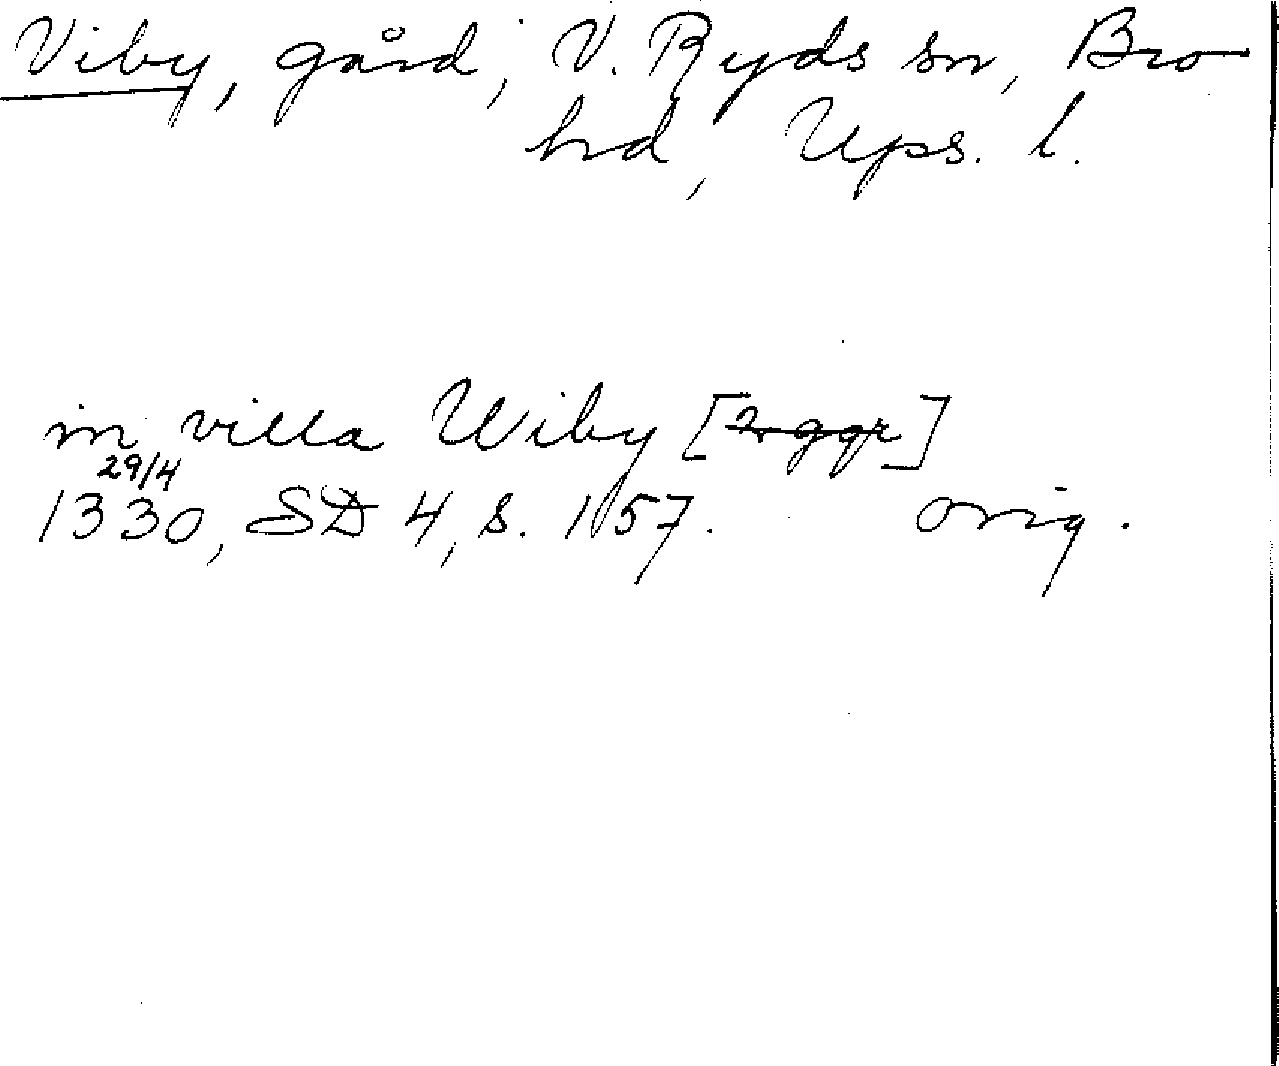 Viby, gård, V. Ryds sn, Bro
hd, Ups. l.
in villa Wiby [2 ggr]
29/4
1330, SD 4, s. 157. orig.